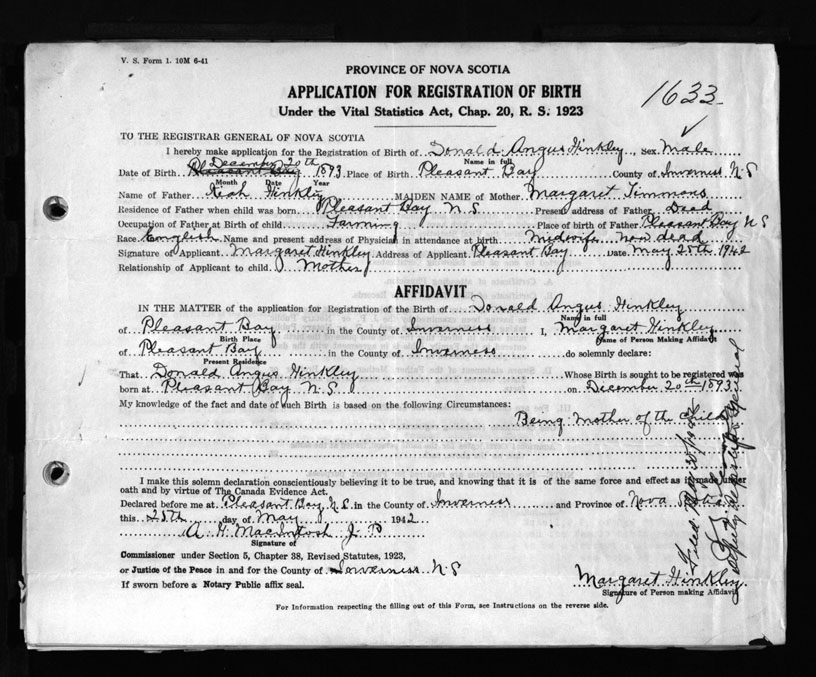 V. S. Form 1. 10M 6-41
PROVINCE OF NOVA SCOTIA
APPLICATION FOR REGISTRATION OF BIRTH
Under the Vital Statistics Act, Chap. 20, R. S. 1923
1633
TO THE REGISTRAR GENERAL OF NOVA SCOTIA
I hereby make application for the Registration of Birth of Donald Angus Hinkley, Sex Male
Name in full
Date of Birth Pleasant Bay December 20th 1893 Place of Birth Pleasant Bay County of Inverness N S
Month Date Year
Name of Father Hinkley MAIDEN NAME of Mother Margaret Timmons
Residence of Father when child was born Pleasant Bay N.S Present address of Father Dead
Occupation of Father at Birth of child Farming Place of birth of Father Pleasant Bay N S
Race English Name and present address of Physician in attendance at birth Midwife now dead
Signature of Applicant Margaret Hinkley Address of Applicant Pleasant Bay Date May 25th 1942
Relationship of Applicant to child Mother
AFFIDAVIT
IN THE MATTER of the application for Registration of the Birth of Donald Angus Hinkley
Name in full
of Pleasant Bay in the County of Inverness I, Margaret Hinkley
Birth Place Name of Person Making Affidavit
of Pleasant Bay in the County of Inverness do solemnly declare:
Present Residence
That Donald Angus Hinkley Whose Birth is sought to be registered was
born at Pleasant Bay N.S on December 20th 1893
My knowledge of the fact and date of such Birth is based on the following Circumstances:
Being Mother of the Child
I make this solemn declaration conscientiously believing it to be true, and knowing that it is of the same force and effect as if made under
oath and by virtue of The Canada Evidence Act.
Declared before me at Pleasant Bay N.S. in the County of Inverness and Province of Nova Scotia
this 25th day of May 1942
A H MacIntosh J. P
Signature of
Commissioner under Section 5, Chapter 38, Revised Statutes, 1923,
or Justice of the Peace in and for the County of Inverness N.S
If sworn before a Notary Public affix seal.
Margaret Hinkley
Signature of Person making Affidavit
For Information respecting the filling out of this Form, see Instructions on the reverse side.
Deputy Registrar General